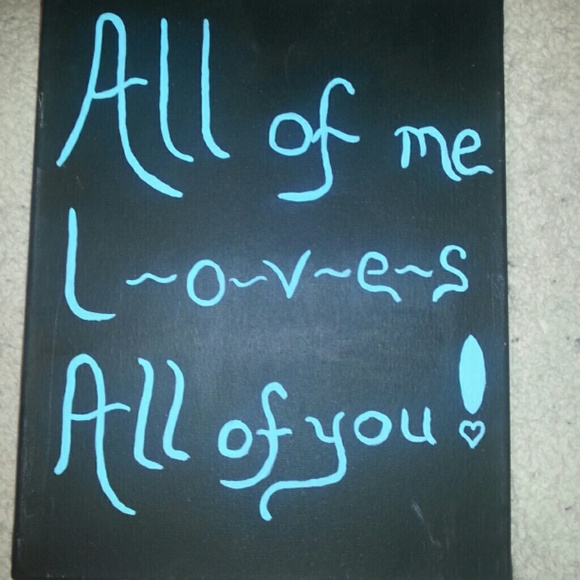 All of me
L~o~v~e~s
All of you!